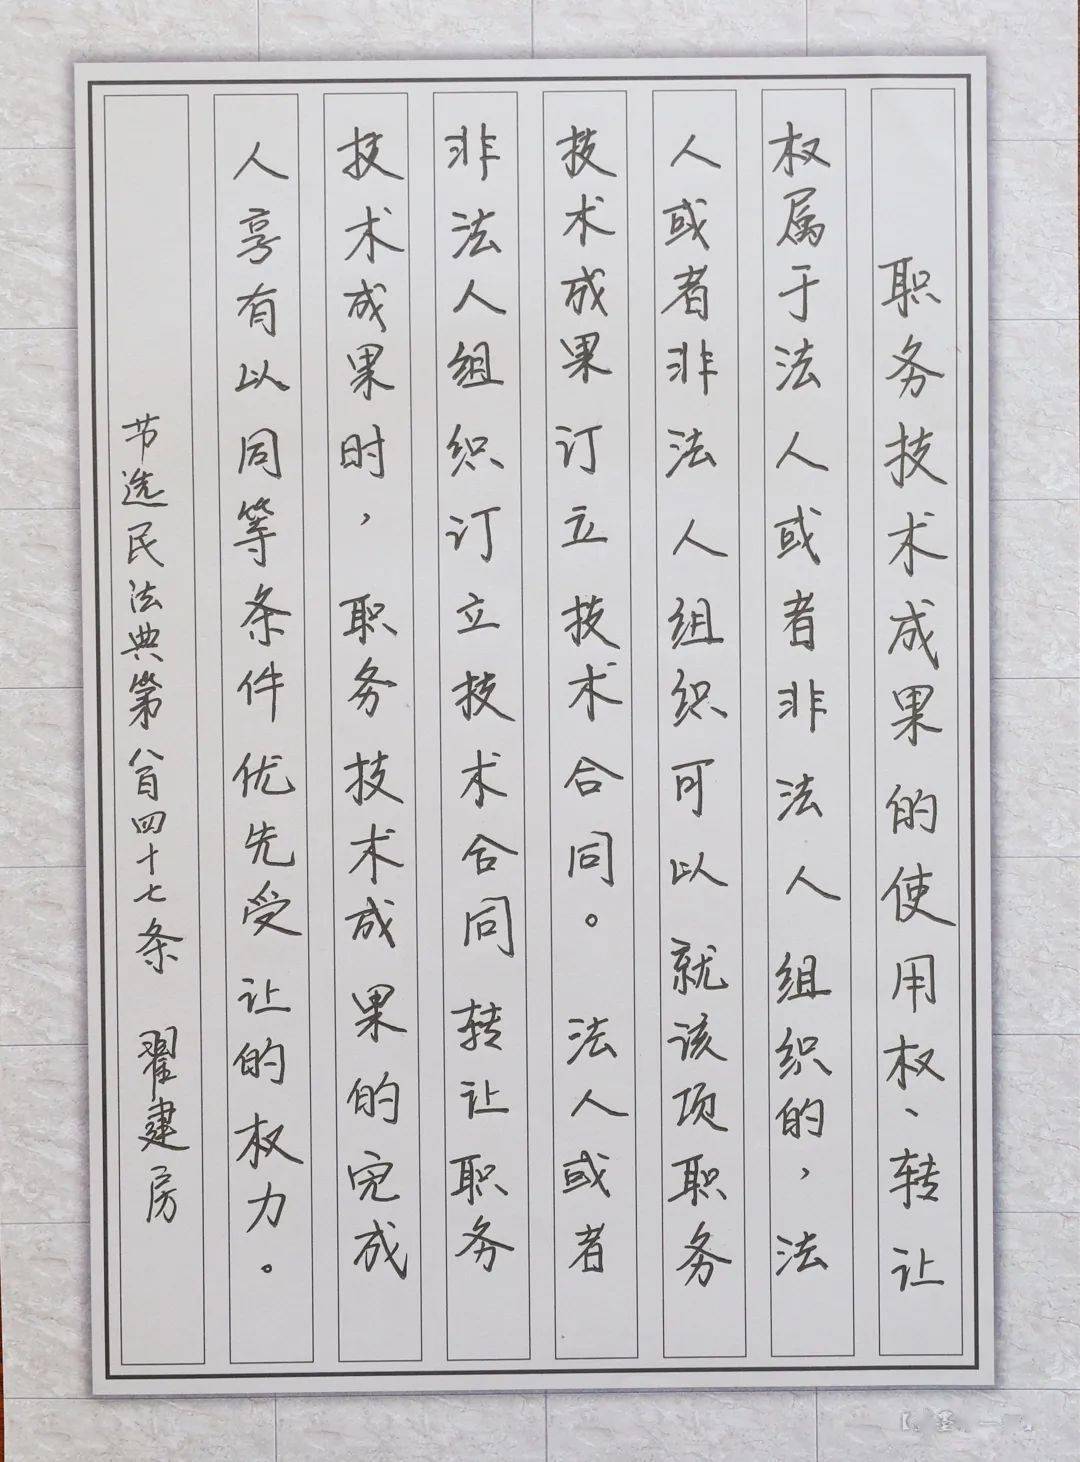 职务技术成果的使用权、转让
权属于法人或者非法人组织的，法
人或者非法人组织可以就该项职务
技术成果订立技术合同。法人或者
非法人组织订立技术合同转让职务
技术成果时，职务技术成果的完成
人享有以同等条件优先受让的权力。
节选民法典第八百四十七条 翟建房